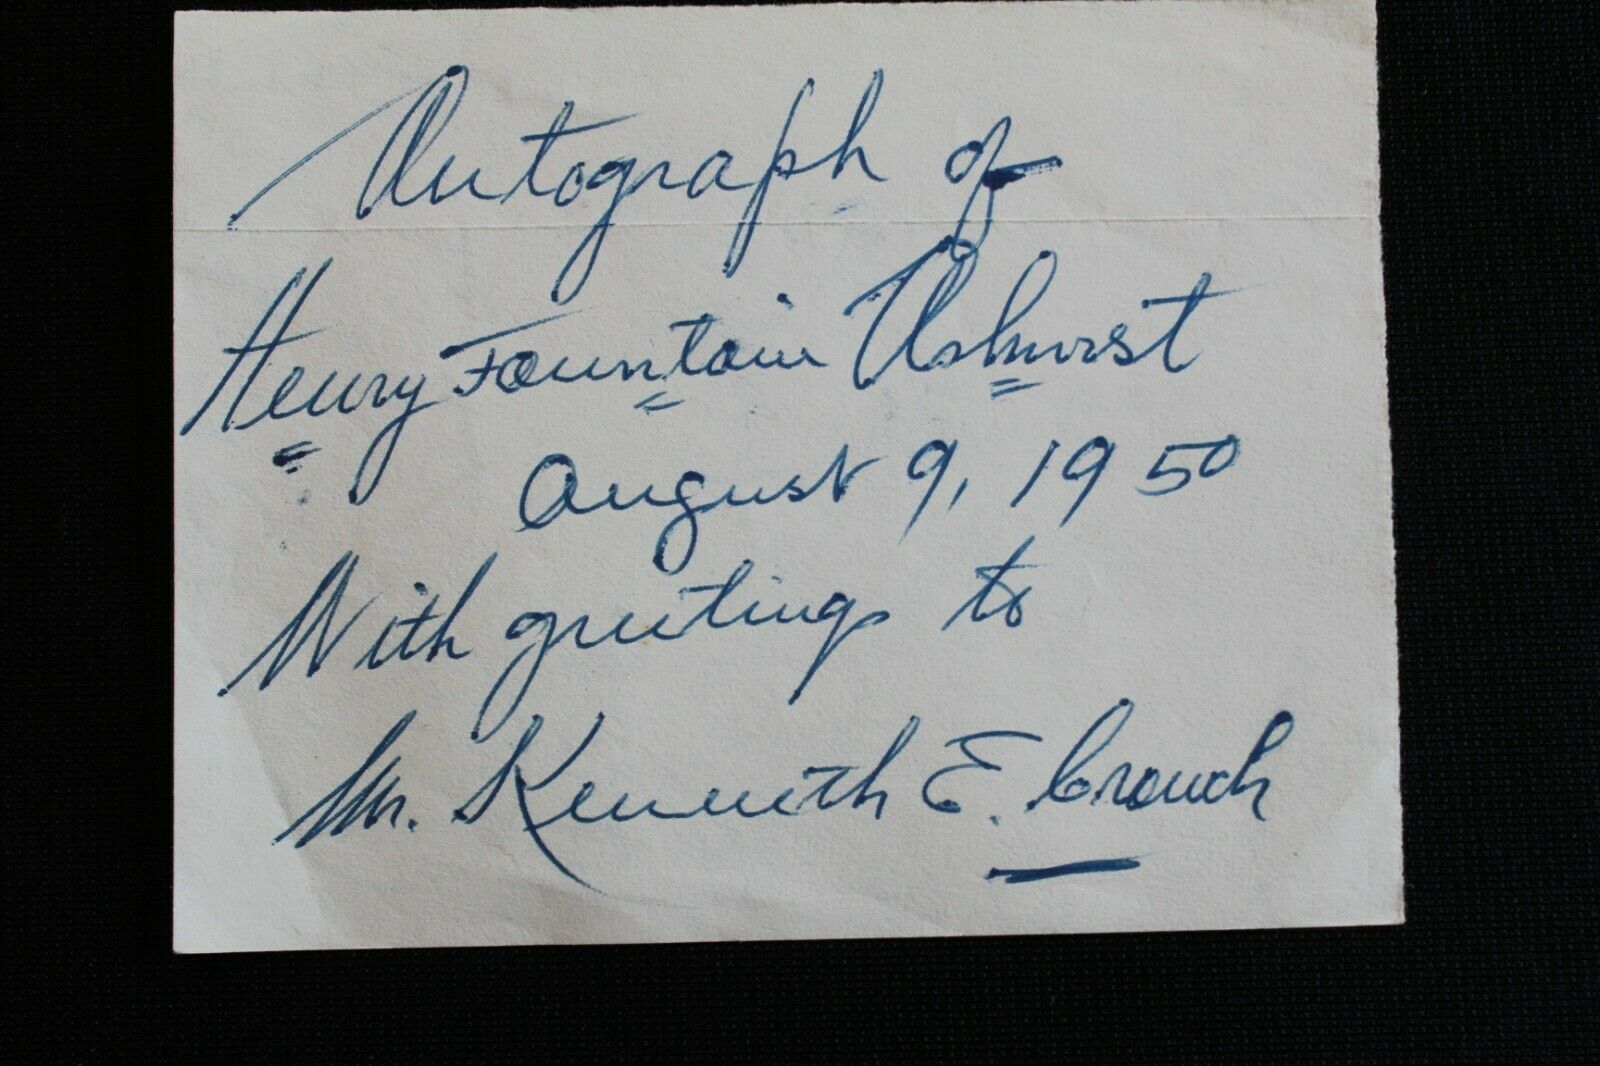 Autograph of
Henry Fountain Ashurst
August 9, 1950
With greetings to
Mr. Kenneth E. Crouch